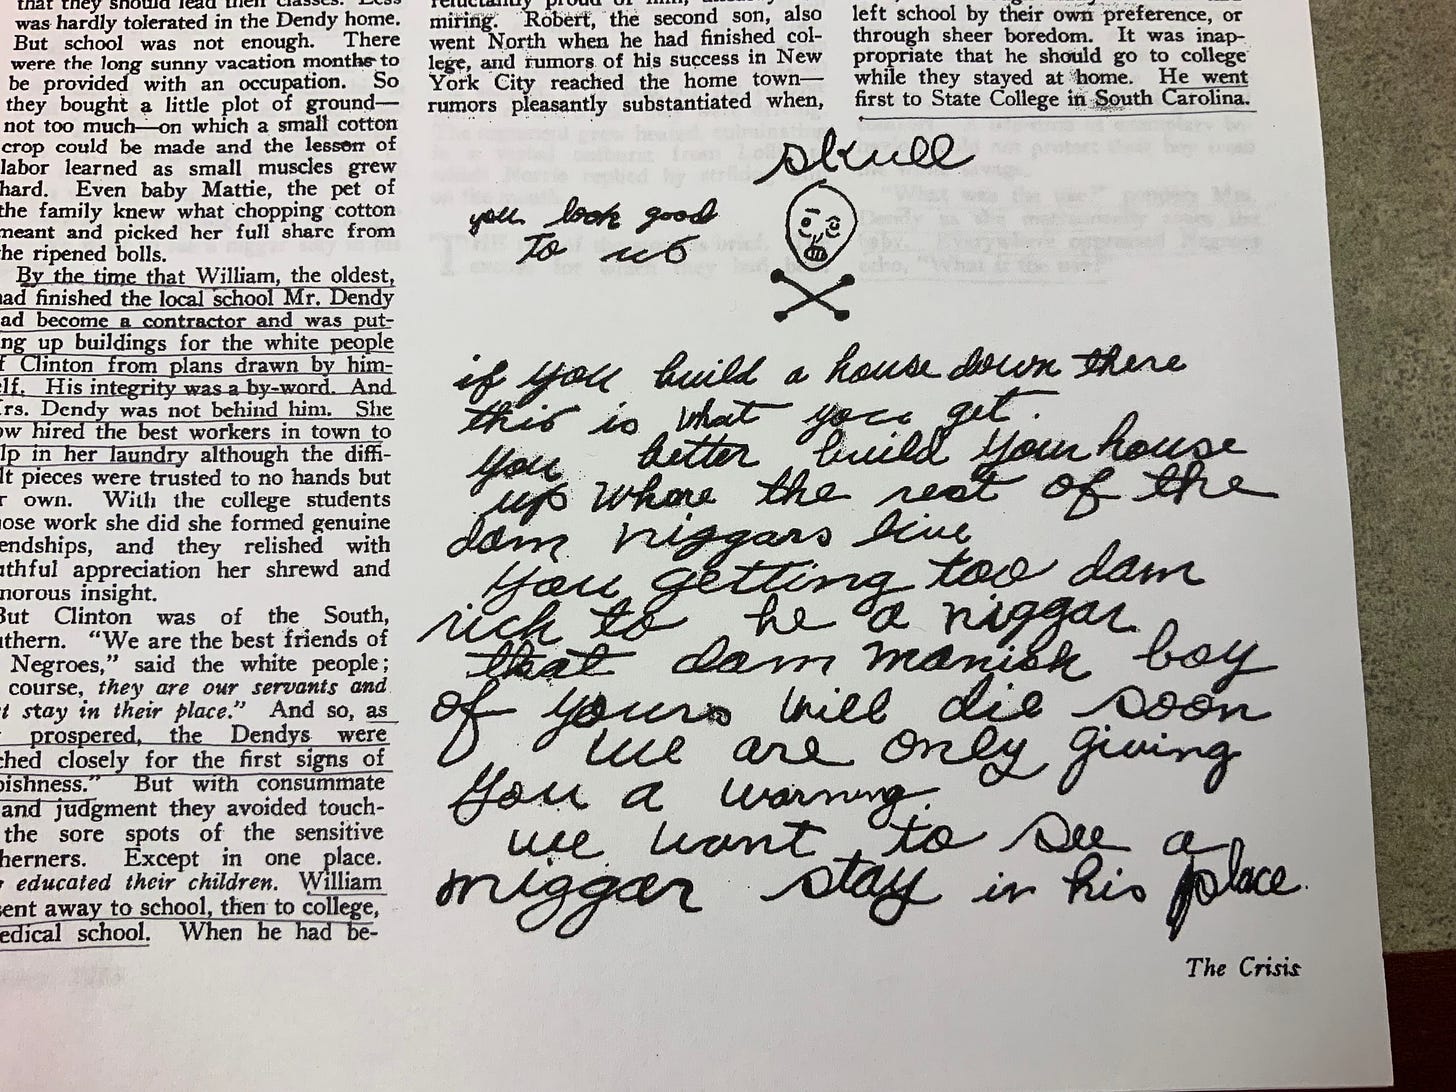 that they should lead their classes. Less
was hardly tolerated in the Dendy home.
But school was not enough. There
were the long sunny vacation months to
be provided with an occupation. So
they bought a little plot of ground—
not too much—on which a small cotton
crop could be made and the lesson of
labor learned as small muscles grew
hard. Even baby Mattie, the pet of
the family knew what chopping cotton
meant and picked her full share from
he ripened bolls.
By the time that William, the oldest,
ad finished the local school Mr. Dendy
ad become a contractor and was put-
ng up buildings for the white people
f Clinton from plans drawn by him-
elf. His integrity was a by-word. And
rs. Dendy was not behind him. She
ow hired the best workers in town to
lp in her laundry although the diffi-
lt pieces were trusted to no hands but
r own. With the college students
ose work she did she formed genuine
endships, and they relished with
thful appreciation her shrewd and
morous insight.
But Clinton was of the South,
thern. "We are the best friends of
Negroes," said the white people;
course, they are our servants and
t stay in their place." And so, as
prospered, the Dendys were
ched closely for the first signs of
pishness." But with consummate
and judgment they avoided touch-
the sore spots of the sensitive
herners. Except in one place.
educated their children. William
sent away to school, then to college,
edical school. When he had be-
reluctantly proud of him,
miring. Robert, the second son, also
went North when he had finished col-
lege, and rumors of his success in New
York City reached the home town—
rumors pleasantly substantiated when,
left school by their own preference, or
through sheer boredom. It was inap-
propriate that he should go to college
while they stayed at home. He went
first to State College in South Carolina.
skull
you look good
to us
if you build a house down there
this is what you get.
you better build your house
up whare the rest of the
dam niggars live
you getting too dam
rich to be a niggar
that dam manish boy
of yours will die soon
we are only giving
you a warning.
we want to see a
niggar stay in his place.
The Crisis